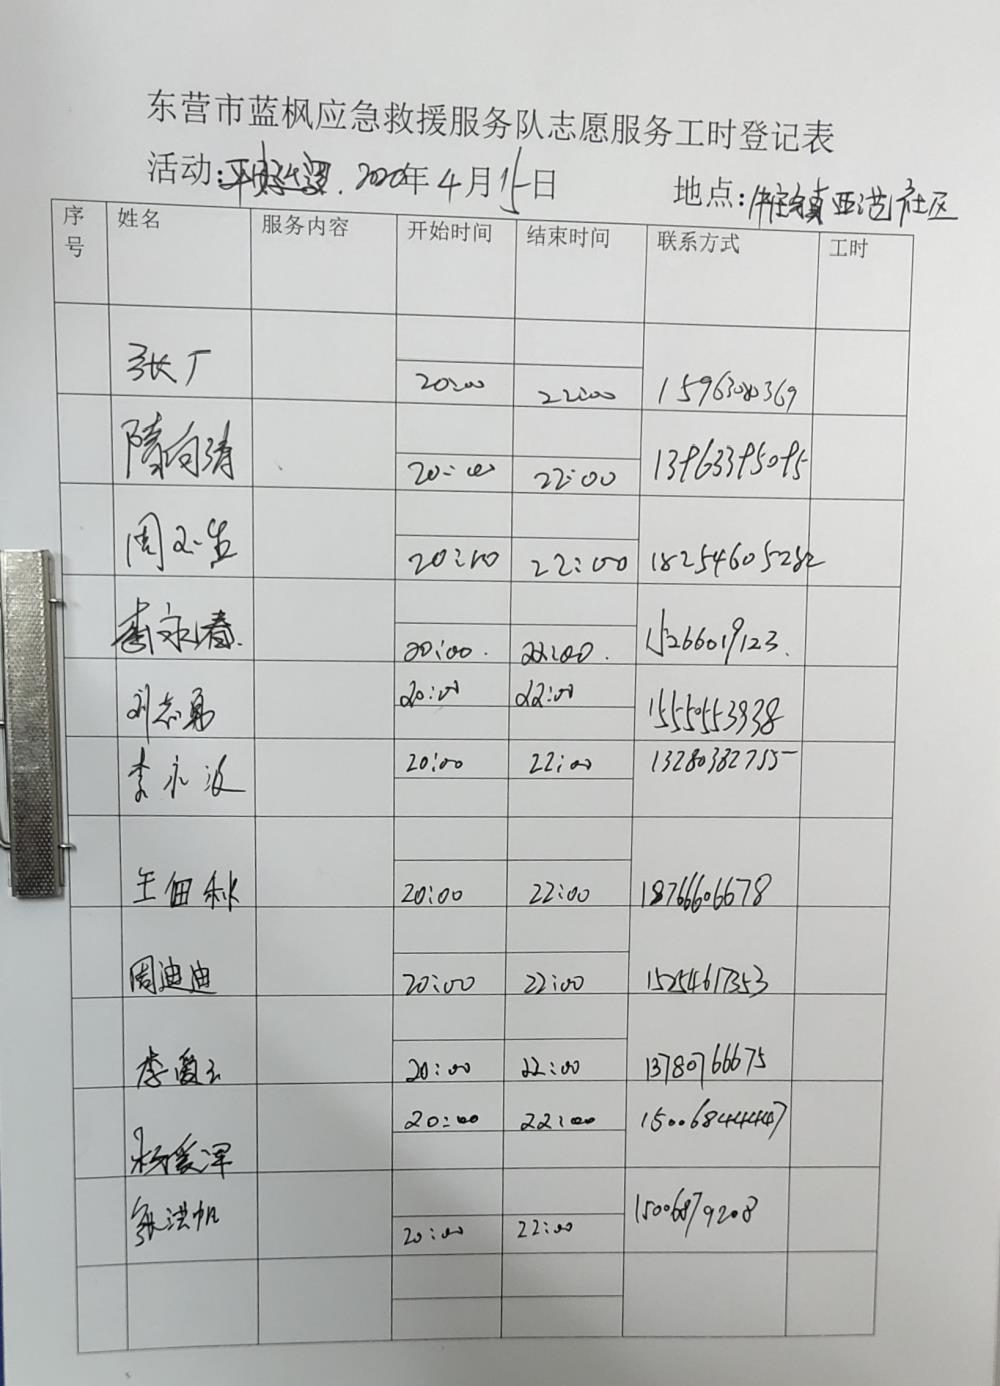 东营市蓝枫应急救援服务队志愿服务工时登记表
活动: 2020年4月15日 地点: 镇亚洪社区
序号 姓名 服务内容 开始时间 结束时间 联系方式 工时
张广 20:00 22:00 1596300369
隋向涛 20:00 22:00 13963395095
周 生 20:00 22:00 18254605282
李永春. 20:00. 22:00. 15266019123.
刘志勇 20:00 22:00 15550553938
李永波 20:00 22:00 13280382755
王佃秋 20:00 22:00 18766606678
周迪迪 20:00 22:00 15254617353
李爱玉 20:00 22:00 13780766675
杨爱浑 20:00 22:00 15006844447
张洪帆 20:00 22:00 15006879208